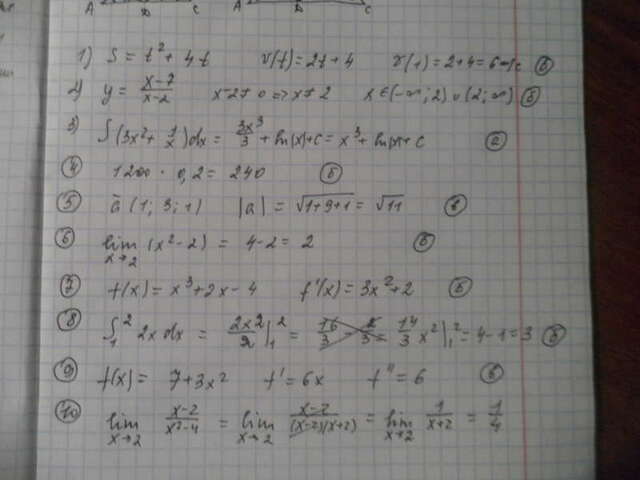 A D C A D C
1) S = t² + 4t v(t) = 2t + 4 v(1) = 2+4 = 6 м/с б
2) y = (x-7)/(x-2) x-2≠0 => x≠2 x ∈ (-∞; 2) ∪ (2; ∞) б
3) ∫(3x² + 1/x)dx = 3x³/3 + ln(x) + C = x³ + ln|x| + C а
4 1200 · 0,2 = 240 б
5 ā (1; 3; 1) |a| = √(1+9+1) = √11 в
6 lim x→2 (x²-2) = 4-2 = 2 б
7 f(x) = x³+2x-4 f'(x) = 3x²+2 б
8 ∫₁² 2x dx = 2x²/2 |₁² = 14/3 x²|₁² = 4-1 = 3 б
9 f(x) = 7+3x² f' = 6x f'' = 6 в
10 lim x→2 (x-2)/(x²-4) = lim x→2 (x-2)/((x-2)(x+2)) = lim x→2 1/(x+2) = 1/4